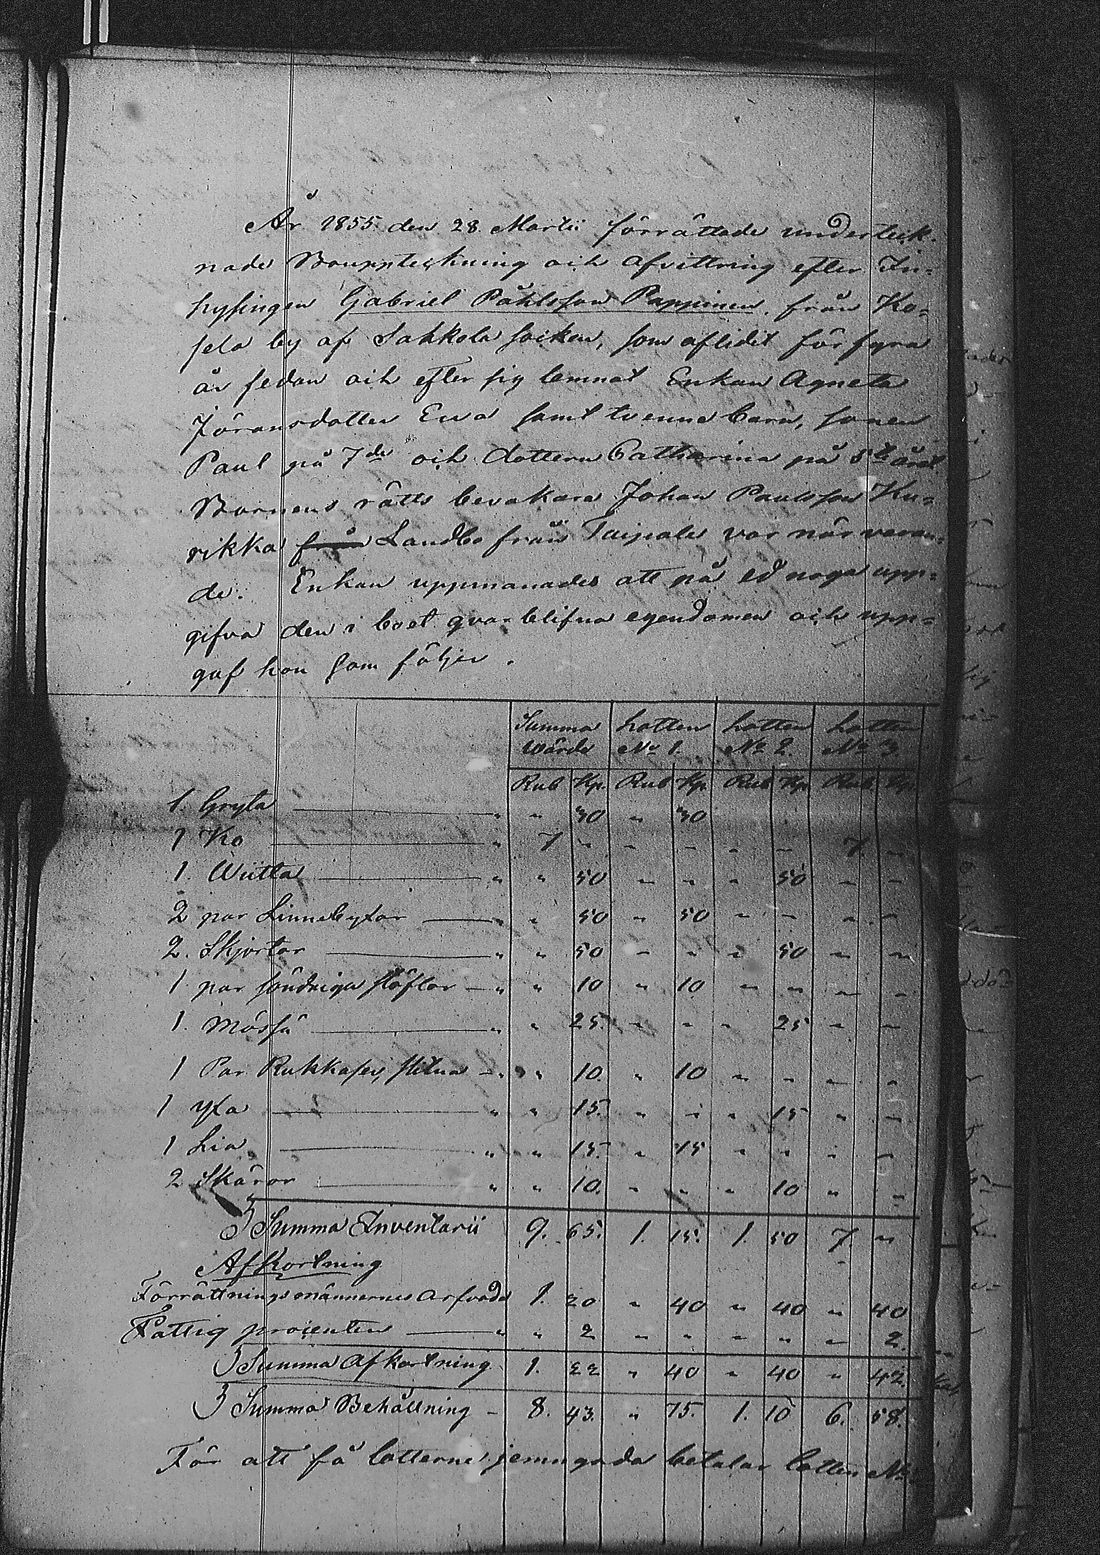 År 1855 den 28 Martii förrättade underteck-
nade Bouppteckning och afvittring efter In-
hysingen Gabriel Påhlsson Pappinen från Ko-
sela by af Sakkola socken, som aflidit för fyra
år sedan och efter sig lemnat Enkan Agneta
Jöransdotter Ewa samt tvenne barn, sonen
Paul på 7de och dottern Catharina på 5te året
Barnens rätts bevakare Johan Paulsson Ku-
rikka från Landbo från Taipale var närvaran-
de. Enkan uppmanades att på ed noga upp-
gifva den i boet qvarblifna egendomen och upp-
gaf hon som följer.
Summa Lotten Lotten Lotten
Wärde No 1. No 2. No 3
Rub Kp. Rub Kp. Rub Kp. Rub Kp.
1. Gryta " " 30 " 30
1 Ko " 7 " " " " " 7. "
1. Wiitta " " 50 " " " 50 " "
2 par Linnebyxor " " 50 " 50 " " " "
2. Skjortor " " 50 " " " 50 " "
1 par söndriga stöflor " " 10 " 10. " " " "
1. Mössä " " 25 " " " 25 " "
1 Par Rukkaser, slitna " " 10. " 10 " " " "
1 yxa " " 15. " " " 15 " "
1 Lia " " 15. " 15 " " " "
2 Skäror " " 10. " " " 10 " "
Summa Inventarii 9. 65. 1. 15. 1. 50 7. "
Afkortning
Förrättningsmännernes arfvode 1. 20 " 40 " 40 " 40
Fattig procenten " " 2 " " " " " 2.
Summa Afkortning 1. 22 " 40 " 40 " 42
Summa Behållning 8. 43. " 75. 1. 10 6. 58.
För att få lotterne jemngoda betalar lotten No